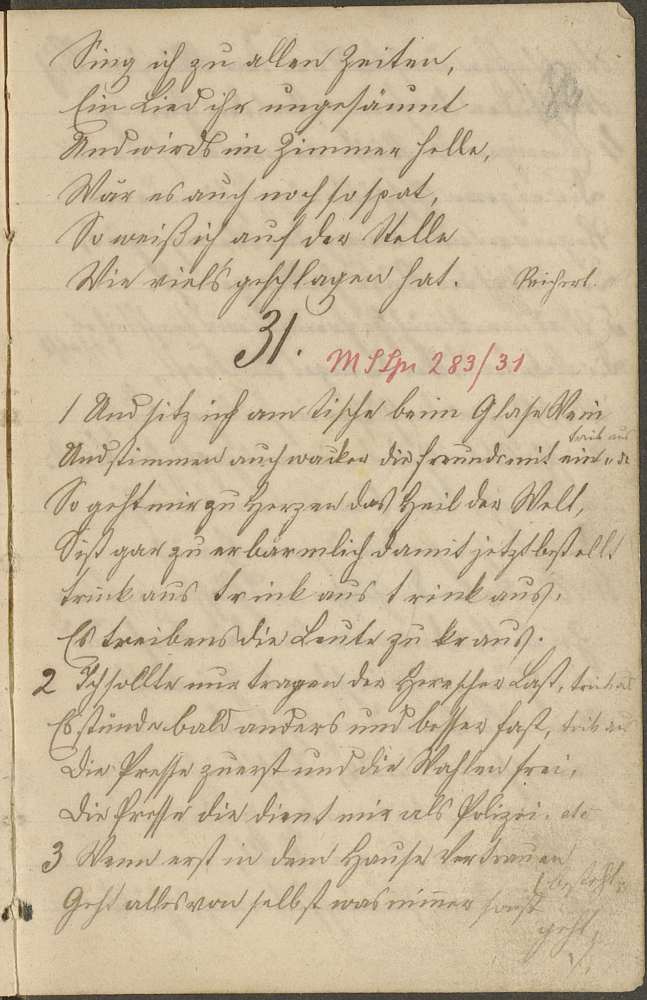 Sing ich zu allen Zeiten,
Ein Lied ihr ungesäumt
Und wirds im Zimmer helle,
Wär es auch noch so spat,
So weiß ich auf der Stelle
Wie viel's geschlagen hat. Reichert.
31.
MSLpr 283/31
1 Und sitz ich am Tische beim Glase Wein
trink aus
Und stimmen auch wacker die Freunde mit ein
So geht mir zu Herzen das Heil der Welt,
S ist gar zu erbärmlich damit jetzt bestellt
trink aus trink aus trink aus,
Es treibens die Leute zu kraus.
2 Ich sollte nur tragen der Herrscher Last, trink aus
Es stünde bald anders und besser fast, trink aus
Die Presse zuerst und die Wahlen frei,
Die Presse die dient mir als Polizei. etc
3 Wenn erst in dem Hause Vertrauen
besteht,
Geht alles von selbst was nimmer sonst
geht,